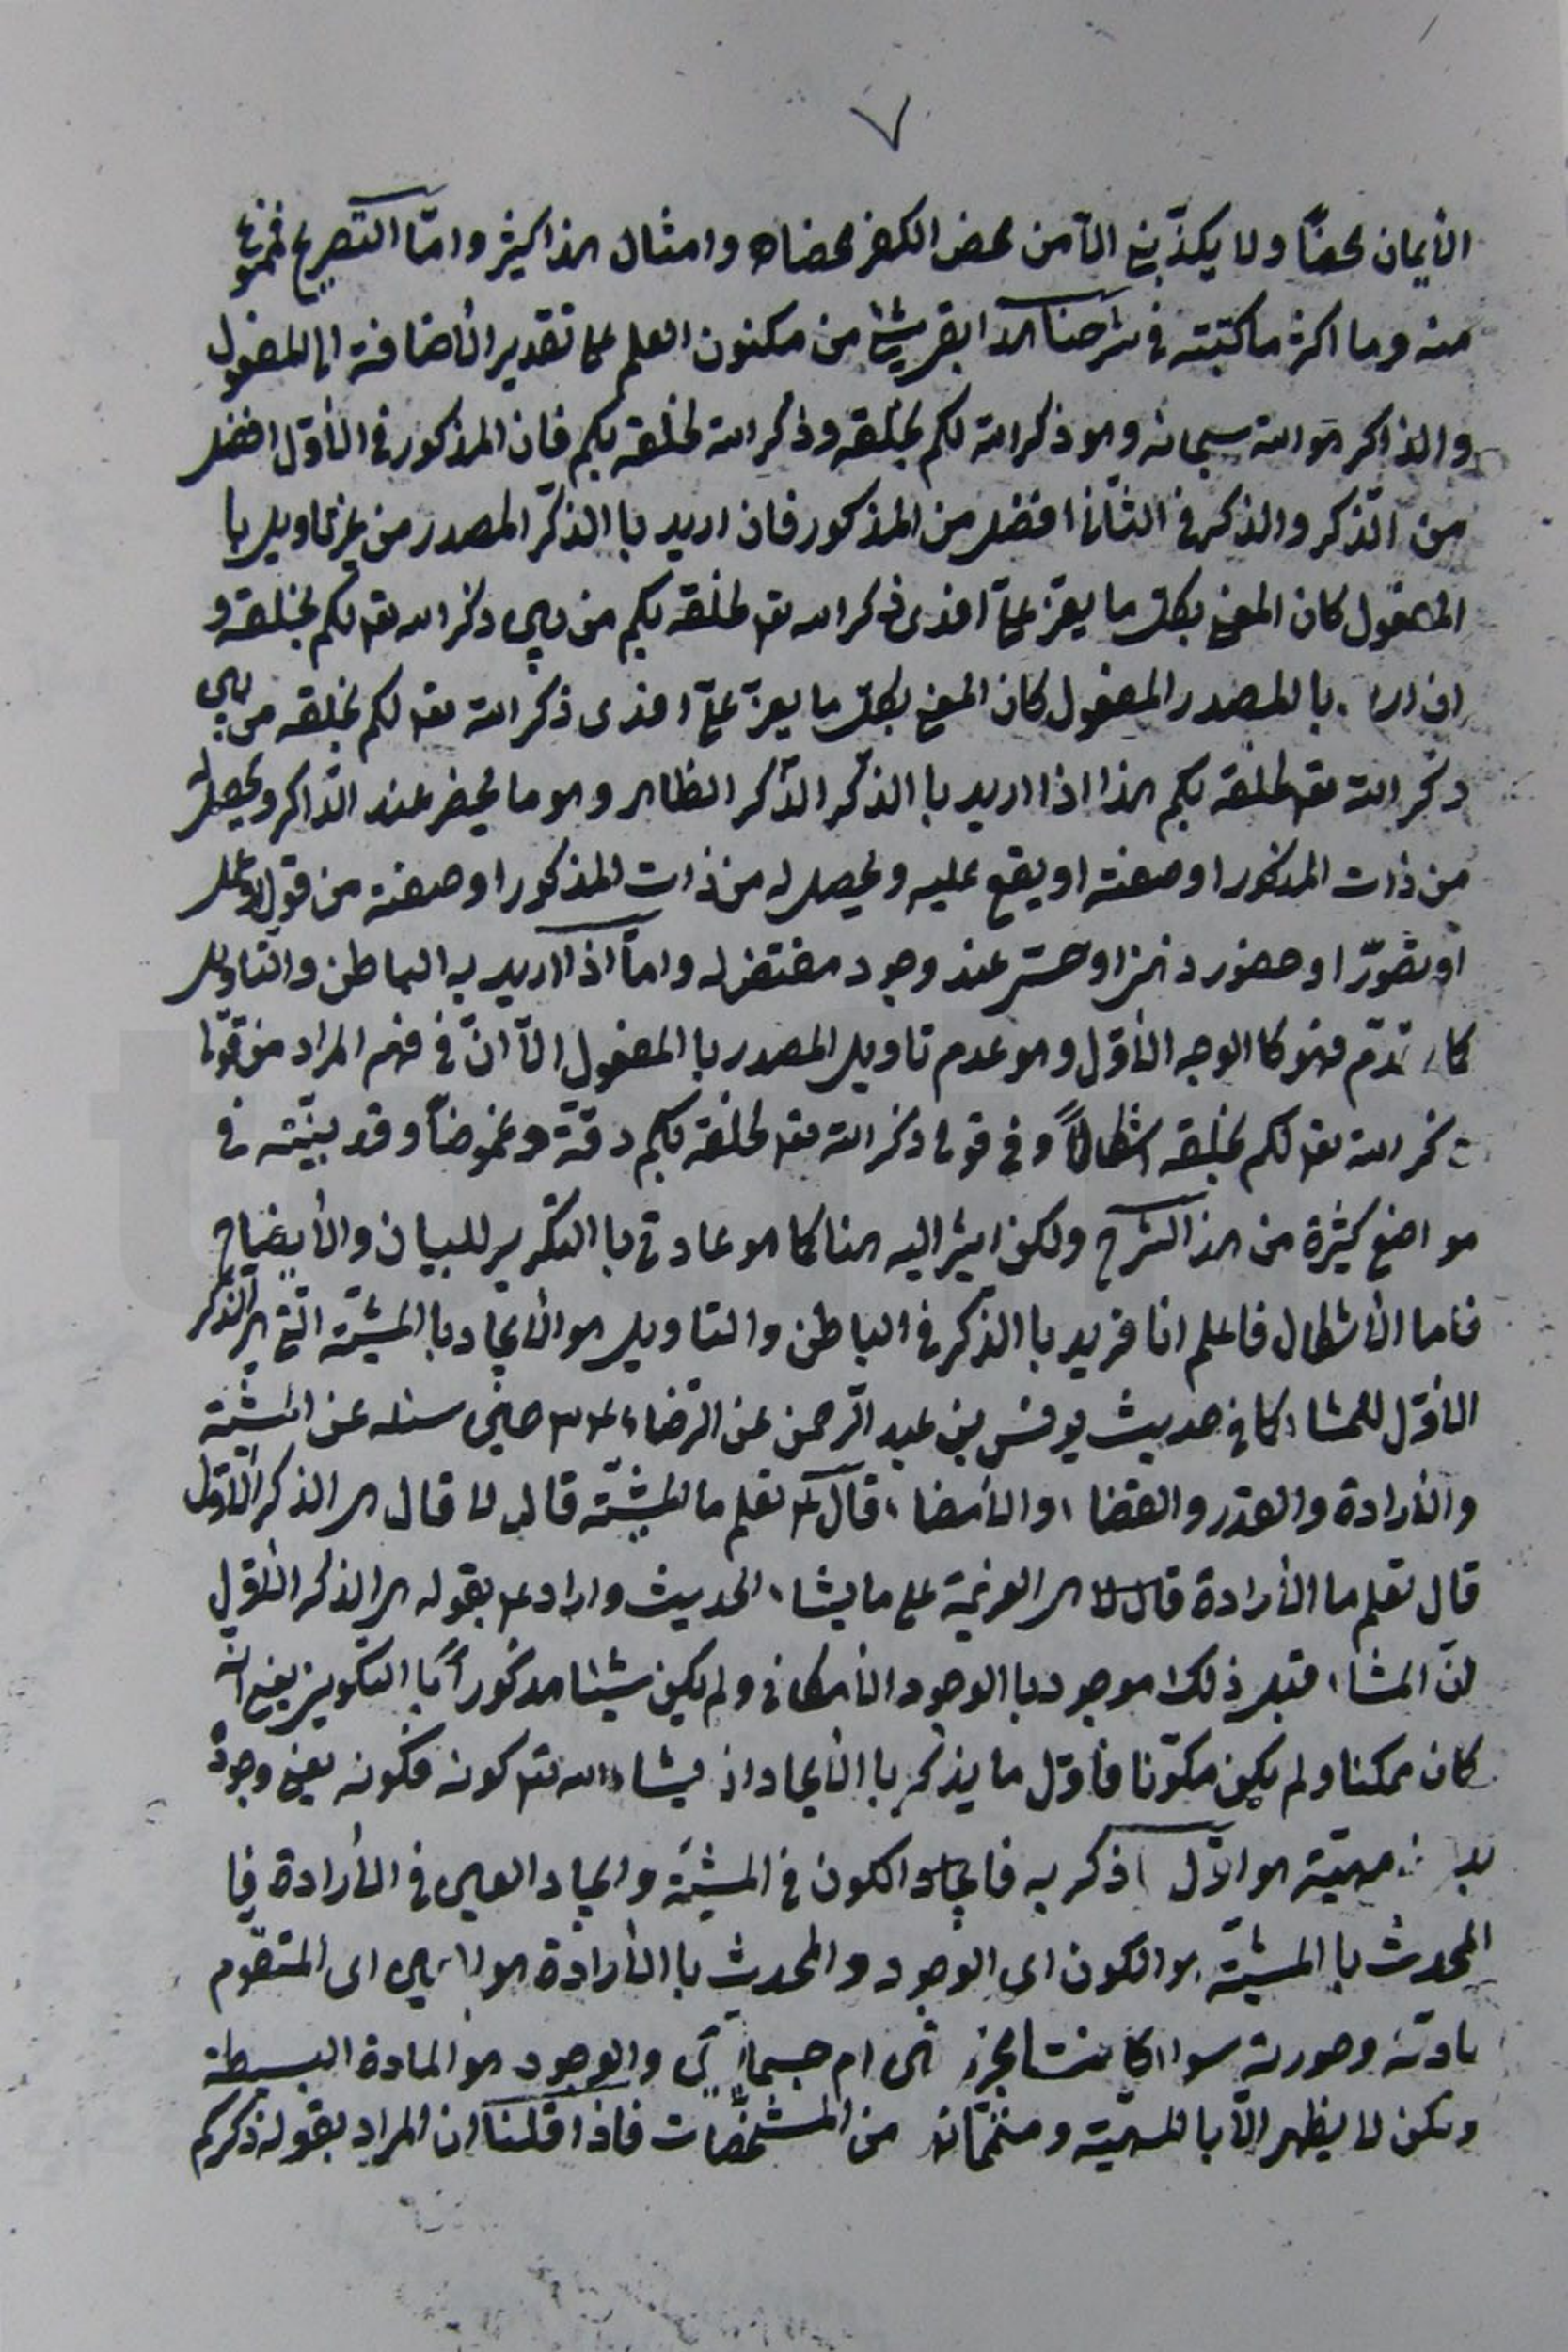 ٧
الأيمان محضاً ولا يكذّبني الّا من محض الكفر محضاه وامثال هذا كثير وامّا التصريح فممنوع
منه وما اكثر ما كتبته في شرحنا هذا بقريشا من مكنون العلم على تقدير الأضافة الى المفعول
والذاكر هو الله سبحانه وهو ذكر الله لكم بخلقه وذكر الله لخلقه بكم فان المذكور في الأوّل افضل
من الذّكر والذكر في الثّاني افضل من المذكور فان اريد با الذكّر المصدر من غير تاويل با
المفعول كان المعنى بكلّ ما يعزّ علىّ افدى ذكر الله تعه لخلقه بكم من بين ذكر الله تعه لكم بخلقه و
ان اريد بالمصدر المفعول كان المعنى بكلّ ما يعزّ علىّ افدى ذكر الله تعه لكم بخلقه من بين
ذكر الله تعه لخلقه بكم هذا اذا اريد با الذكّر الذّكر الظاهر وهو ما يحضر عند الذّاكر ويحصل له
من ذات المذكور او صفته او يقع عليه ويحصل له من ذات المذكور او صفته من قول او عمل
او تصوّر او حضور ذهن او حسّ عند وجود مقتض له وامّا اذا اريد به الباطن والتاويل
كما تقدّم فهو كا الوجه الأوّل وهو عدم تاويل المصدر با المفعول الّا انّ في فهم المراد من قولنا
ذكر الله تعه لكم بخلقه اشكالاً وفي قولى ذكر الله تعه لخلقه بكم دقّة وغموضاً وقد بيّنته في
مواضع كثيرة من هذا الشرح ولكن اشير اليه هنا كما هو عادتى با التكرير للبيان والأيضاح
فاما الأشكال فاعلم انا نريد با الذكر في الباطن والتاويل هو الأيجاد با المشيّة الّتى هى الذكر
الأوّل للمشاء كما في حديث يونس بن عبد الرّحمن عن الرّضاء ع حين سئله عن المشيّة
والأرادة والقدر والقضاء والأمضاء قال ع تعلم ما المشيّة قال لا قال هى الذكر الأوّل
قال تعلم ما الأرادة قال لا هى العزيمة على ما يشاء الحديث واراد ع بقوله هى الذكر الأوّل
لانّ المشاء قبل ذلك موجود با الوجود الأمكانى ولم يكن شيئا مذكوراً با التكوين يعنى انّه
كان ممكنا ولم يكن مكوّنا فاوّل ما يذكر با الأيجاد ان يشاء الله تعه كونه فكونه يعنى وجوده
بدون مهيّة هو اوّل ذكر به فايجاد الكون في المشيّة وايجاد العين في الأرادة فا
المحدث با المشيّة هو الكون اى الوجود والمحدث با الأرادة هو العين اى المتقوّم
بمادته وصورته سواء كانت من المجردات ام جسمانى والوجود هو المادة البسيطة
ولكن لا يظهر الّا بالمهيّة ومتمّماته من المشخّصات فاذا قلنا ان المراد بقوله ذكركم